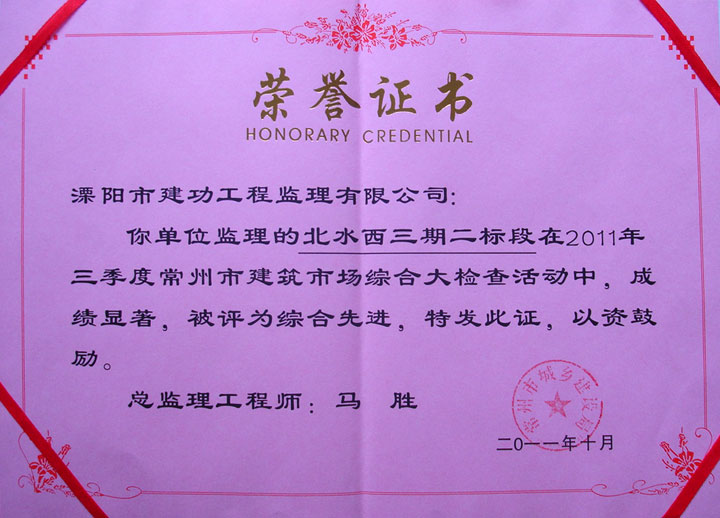 荣誉证书
HONORARY CREDENTIAL
溧阳市建功工程监理有限公司：
你单位监理的北水西三期二标段在2011年
三季度常州市建筑市场综合大检查活动中，成
绩显著，被评为综合先进，特发此证，以资鼓
励。
总监理工程师：马 胜
常州市城乡建设局
二〇一一年十月